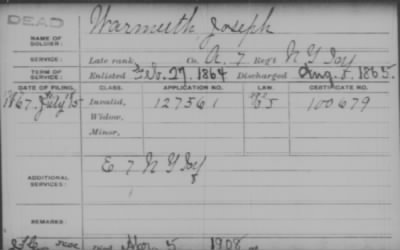 DEAD
NAME OF SOLDIER: Warmuth Joseph
SERVICE: Late rank Co. A. 7 Reg't N Y Inf
TERM OF SERVICE: Enlisted Feb. 27. 1864 Discharged Aug. 8. 1865.
DATE OF FILING. CLASS. APPLICATION NO. LAW. CERTIFICATE NO.
July 15 Invalid, 127561 100679
Widow,
Minor,
ADDITIONAL SERVICES: E 7 N Y
REMARKS:
Nov 5 1908